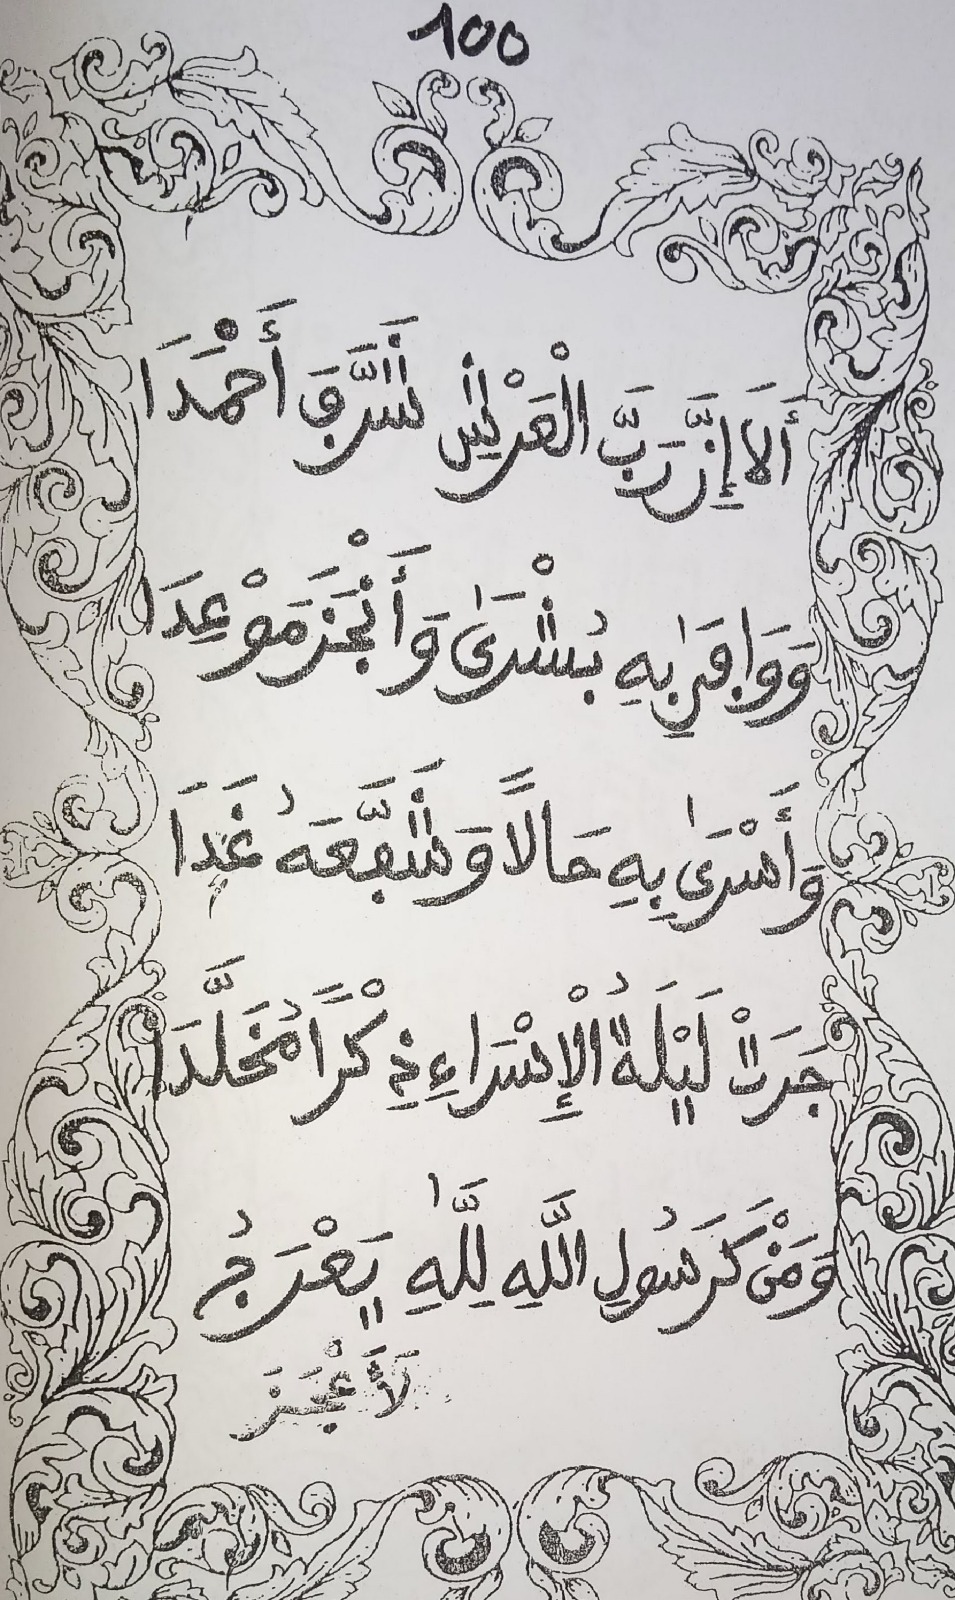 100
أَلَا إِنَّ رَبَّ الْعَرْشِ شَرَّفَ أَحْمَدَا
وَوَافَىٰ بِهِ بُشْرَىٰ وَأَنْجَزَ مَوْعِدَا
وَأَسْرَىٰ بِهِ حَالًا وَشَفَّعَهُ غَدَا
جَرَتْ لَيْلَةُ الْإِسْرَاءِ ذِكْرًا مُخَلَّدَا
وَمَنْ كَرَسُولِ اللَّهِ لِلَّهِ يَعْرَجُ
لَأَعْجَزَ